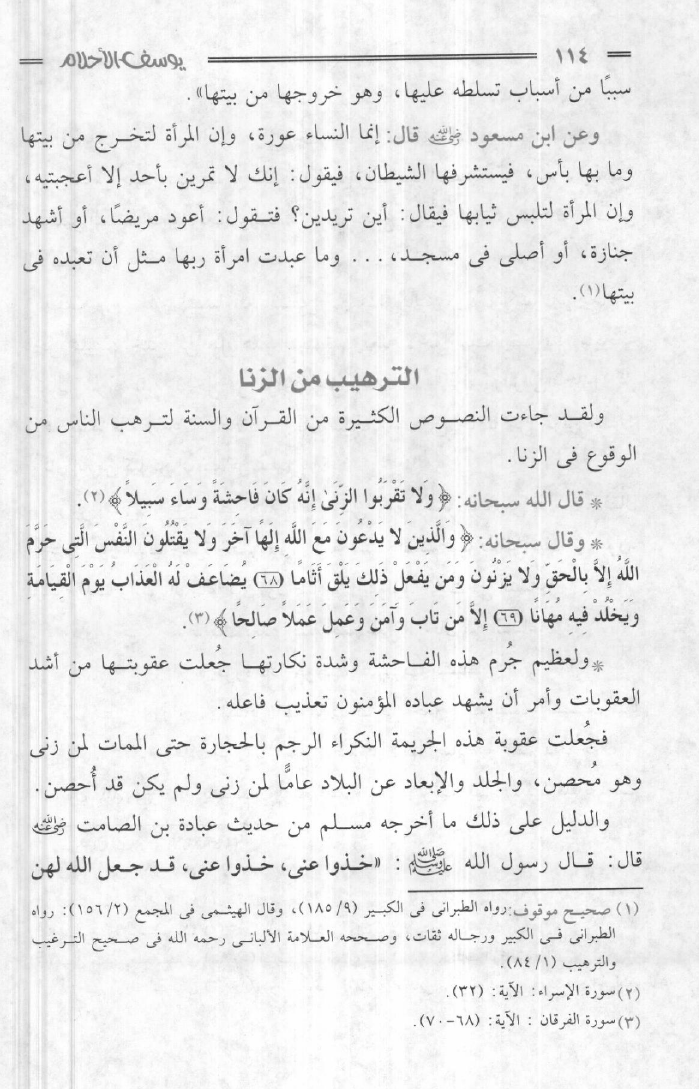 ١١٤ يوسف الأحلام
سببًا من أسباب تسلطه عليها، وهو خروجها من بيتها».
وعن ابن مسعود رضي الله عنه قال: إنما النساء عورة، وإن المرأة لتخرج من بيتها
وما بها بأس، فيستشرفها الشيطان، فيقول: إنك لا تمرين بأحد إلا أعجبتيه،
وإن المرأة لتلبس ثيابها فيقال: أين تريدين؟ فتقول: أعود مريضًا، أو أشهد
جنازة، أو أصلى فى مسجد، ... وما عبدت امرأة ربها مثل أن تعبده فى
بيتها(١).
الترهيب من الزنا
ولقد جاءت النصوص الكثيرة من القرآن والسنة لترهب الناس من
الوقوع فى الزنا.
* قال الله سبحانه: ﴿ وَلا تَقْرَبُوا الزِّنَىٰ إِنَّهُ كَانَ فَاحِشَةً وَسَاءَ سَبِيلاً ﴾(٢).
* وقال سبحانه: ﴿ وَالَّذِينَ لا يَدْعُونَ مَعَ اللَّهِ إِلَهًا آخَرَ وَلا يَقْتُلُونَ النَّفْسَ الَّتِي حَرَّمَ
اللَّهُ إِلاَّ بِالْحَقِّ وَلا يَزْنُونَ وَمَن يَفْعَلْ ذَلِكَ يَلْقَ أَثَامًا (٦٨) يُضَاعَفْ لَهُ الْعَذَابُ يَوْمَ الْقِيَامَةِ
وَيَخْلُدْ فِيهِ مُهَانًا (٦٩) إِلاَّ مَن تَابَ وَآمَنَ وَعَمِلَ عَمَلاً صَالِحًا ﴾(٣).
* ولعظيم جُرم هذه الفاحشة وشدة نكارتها جُعلت عقوبتها من أشد
العقوبات وأمر أن يشهد عباده المؤمنون تعذيب فاعله.
فجُعلت عقوبة هذه الجريمة النكراء الرجم بالحجارة حتى الممات لمن زنى
وهو مُحصن، والجلد والإبعاد عن البلاد عامًّا لمن زنى ولم يكن قد أُحصن.
والدليل على ذلك ما أخرجه مسلم من حديث عبادة بن الصامت رضي الله عنه
قال: قال رسول الله ﷺ : «خذوا عنى، خذوا عنى، قد جعل الله لهن
(١) صحيح موقوف: رواه الطبرانى فى الكبير (٩/ ١٨٥)، وقال الهيثمى فى المجمع (٢/ ١٥٦): رواه
الطبرانى فى الكبير ورجاله ثقات، وصححه العلامة الألبانى رحمه الله فى صحيح الترغيب
والترهيب (١/ ٨٤).
(٢) سورة الإسراء: الآية: (٣٢).
(٣) سورة الفرقان : الآية: (٦٨-٧٠).